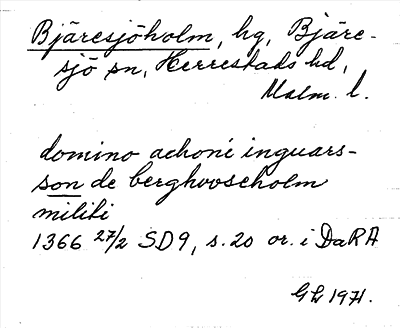 Bjäresjöholm, hg, Bjäre-
sjö sn, Herrestads hd,
Malm. l.
domino achoni inguars-
son de berghooseholm
militi
1366 27/2 SD9, s. 20 or. i DaRA
GL 1971.